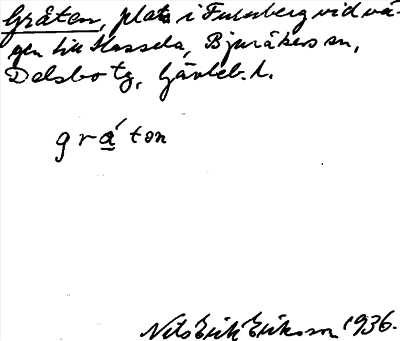 Gråten, plats i Furuberg vid vä-
gen till Hassela, Bjuråkers sn,
Delsbo tg, Gävleb. l.
gråton
Nils Erik Eriksson 1936.